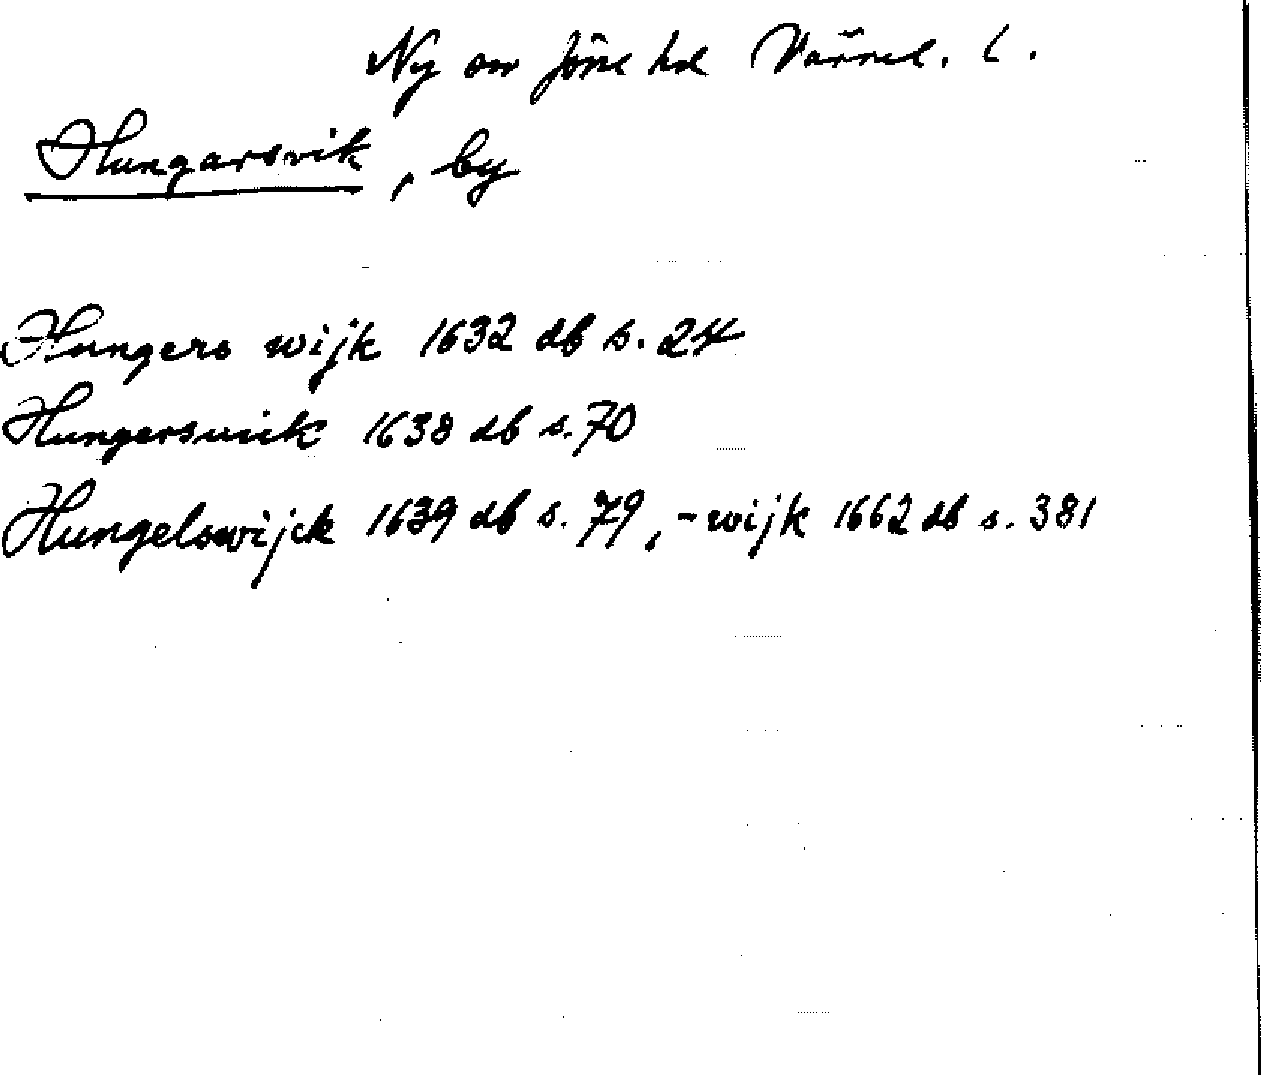 Ny sn Jöse hd Värml. l.
Hungarsvik, by
Hungers wijk 1632 db s. 24
Hungersuiik 1638 db s. 70
Hungelswijck 1639 db s. 79, -wijk 1662 db s. 381